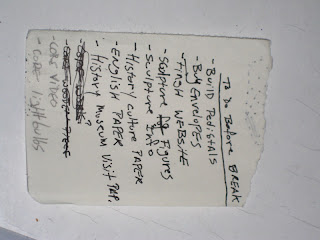 To Do Before BREAK
- BUILD PEDISTALS
- BUY ENVELOPES
- Finish WEBSITE
- Sculpture Figures
- Sculpture Info
- History culture PAPER
- ENGLISH PAPER
- History Museum Visit PAP.
?
- CORE VIDEO
- CORE lightbulbs